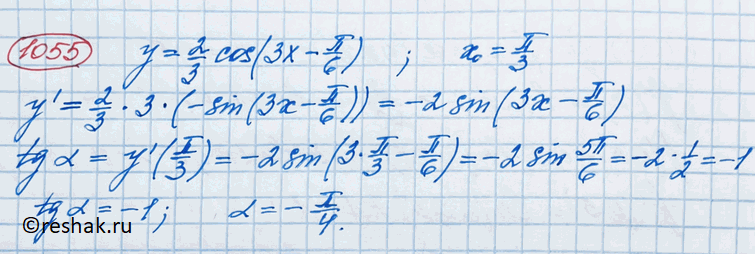 1055 y = 2/3 cos(3x - π/6) ; x₀ = π/3
y' = 2/3 · 3 · (-sin(3x - π/6)) = -2 sin(3x - π/6)
tg α = y'(π/3) = -2 sin(3 · π/3 - π/6) = -2 sin 5π/6 = -2 · 1/2 = -1
tg α = -1; α = -π/4.
©reshak.ru